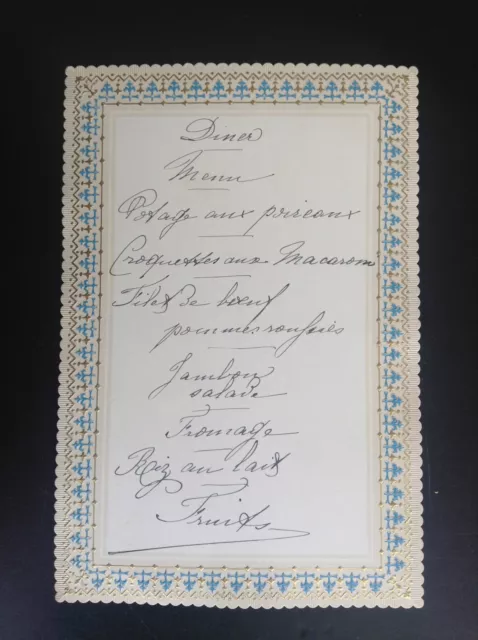 Diner
Menu
Potage aux poireaux
Croquettes aux Macaroni
Filet de boeuf
pommes
Jambon
salade
Fromage
Riz au lait
Fruits